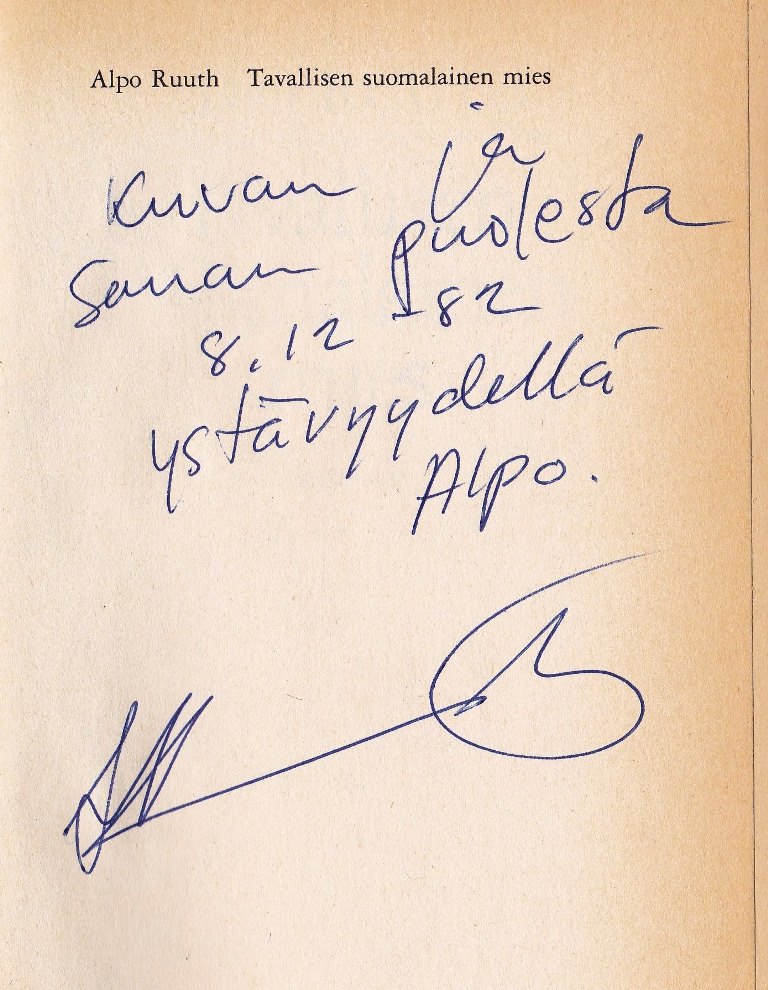 Alpo Ruuth Tavallisen suomalainen mies
Kuvan ja
Sanan puolesta
8.12 -82
ystävyydellä
Alpo.